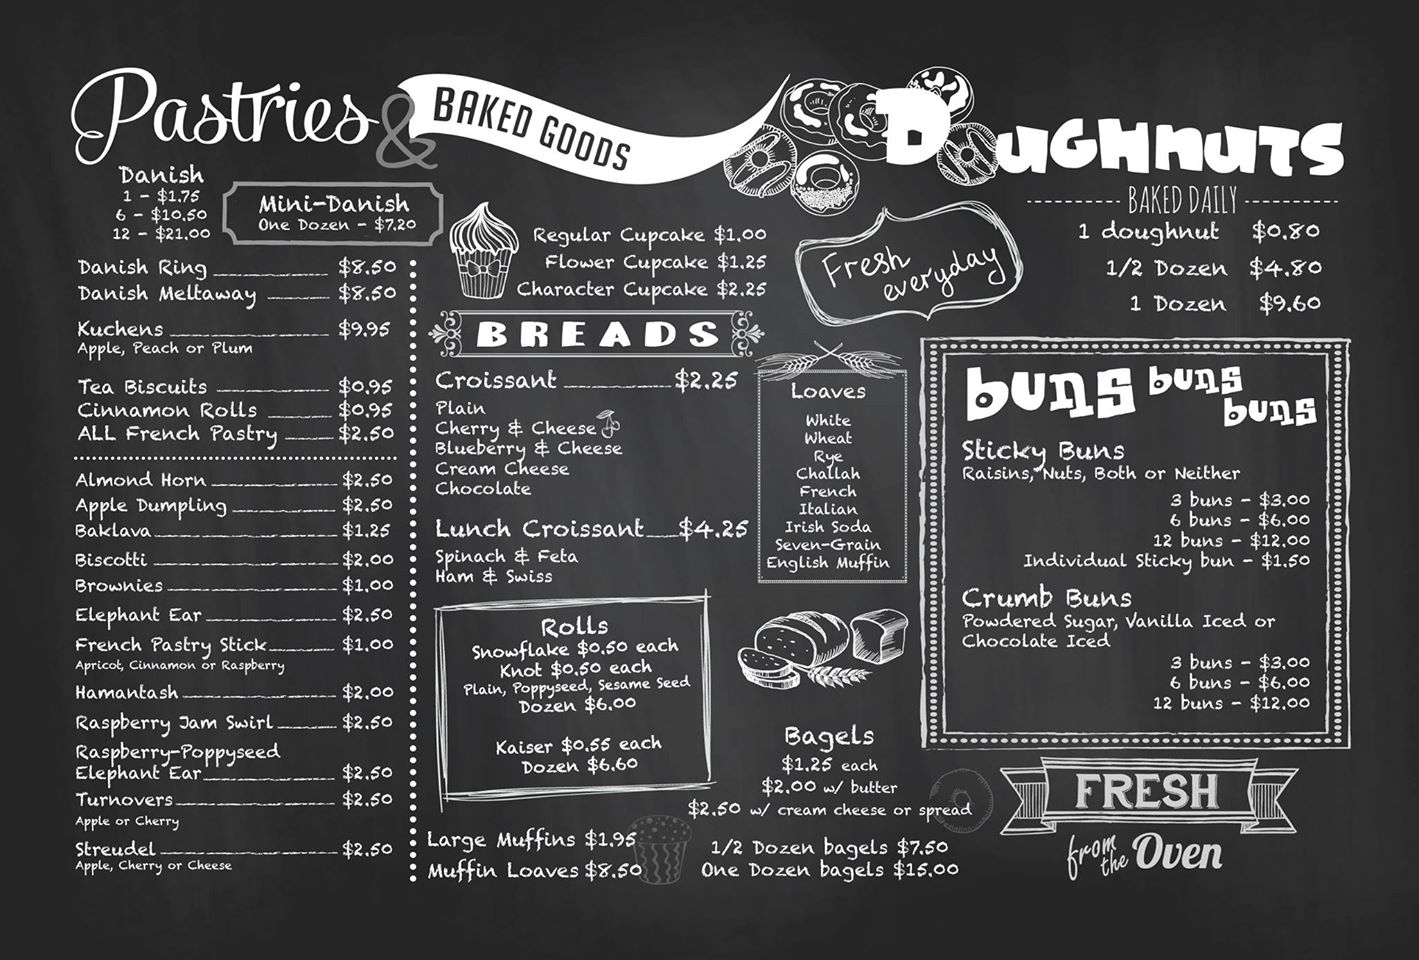 Pastries & BAKED GOODS
Danish
1 - $1.75
6 - $10.50
12 - $21.00
Mini-Danish
One Dozen - $7.20
Danish Ring $8.50
Danish Meltaway $8.50
Kuchens $9.95
Apple, Peach or Plum
Tea Biscuits $0.95
Cinnamon Rolls $0.95
ALL French Pastry $2.50
Almond Horn $2.50
Apple Dumpling $2.50
Baklava $1.25
Biscotti $2.00
Brownies $1.00
Elephant Ear $2.50
French Pastry Stick $1.00
Apricot, Cinnamon or Raspberry
Hamantash $2.00
Raspberry Jam Swirl $2.50
Raspberry-Poppyseed
Elephant Ear $2.50
Turnovers $2.50
Apple or Cherry
Streudel $2.50
Apple, Cherry or Cheese
Regular Cupcake $1.00
Flower Cupcake $1.25
Character Cupcake $2.25
BREADS
Croissant $2.25
Plain
Cherry & Cheese
Blueberry & Cheese
Cream Cheese
Chocolate
Lunch Croissant $4.25
Spinach & Feta
Ham & Swiss
Rolls
Snowflake $0.50 each
Knot $0.50 each
Plain, Poppyseed, Sesame Seed
Dozen $6.00
Kaiser $0.55 each
Dozen $6.60
Large Muffins $1.95
Muffin Loaves $8.50
Loaves
White
Wheat
Rye
Challah
French
Italian
Irish Soda
Seven-Grain
English Muffin
Bagels
$1.25 each
$2.00 w/ butter
$2.50 w/ cream cheese or spread
1/2 Dozen bagels $7.50
One Dozen bagels $15.00
Doughnuts
BAKED DAILY
Fresh
everyday
1 doughnut $0.80
1/2 Dozen $4.80
1 Dozen $9.60
buns buns
buns
Sticky Buns
Raisins, Nuts, Both or Neither
3 buns - $3.00
6 buns - $6.00
12 buns - $12.00
Individual Sticky bun - $1.50
Crumb Buns
Powdered Sugar, Vanilla Iced or
Chocolate Iced
3 buns - $3.00
6 buns - $6.00
12 buns - $12.00
FRESH
from the Oven